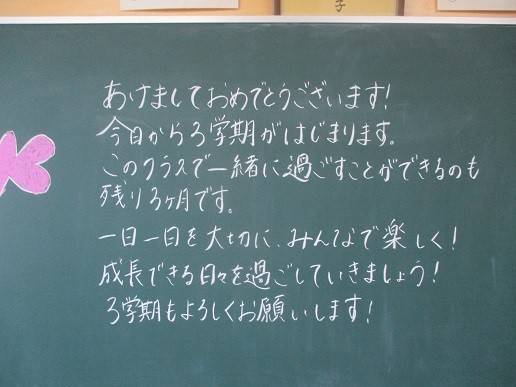 子
あけましておめでとうございます!
今日から3学期がはじまります。
このクラスで一緒に過ごすことができるのも
残り3ヶ月です。
一日一日を大切に、みんなで楽しく!
成長できる日々を過ごしていきましょう!
3学期もよろしくお願いします!